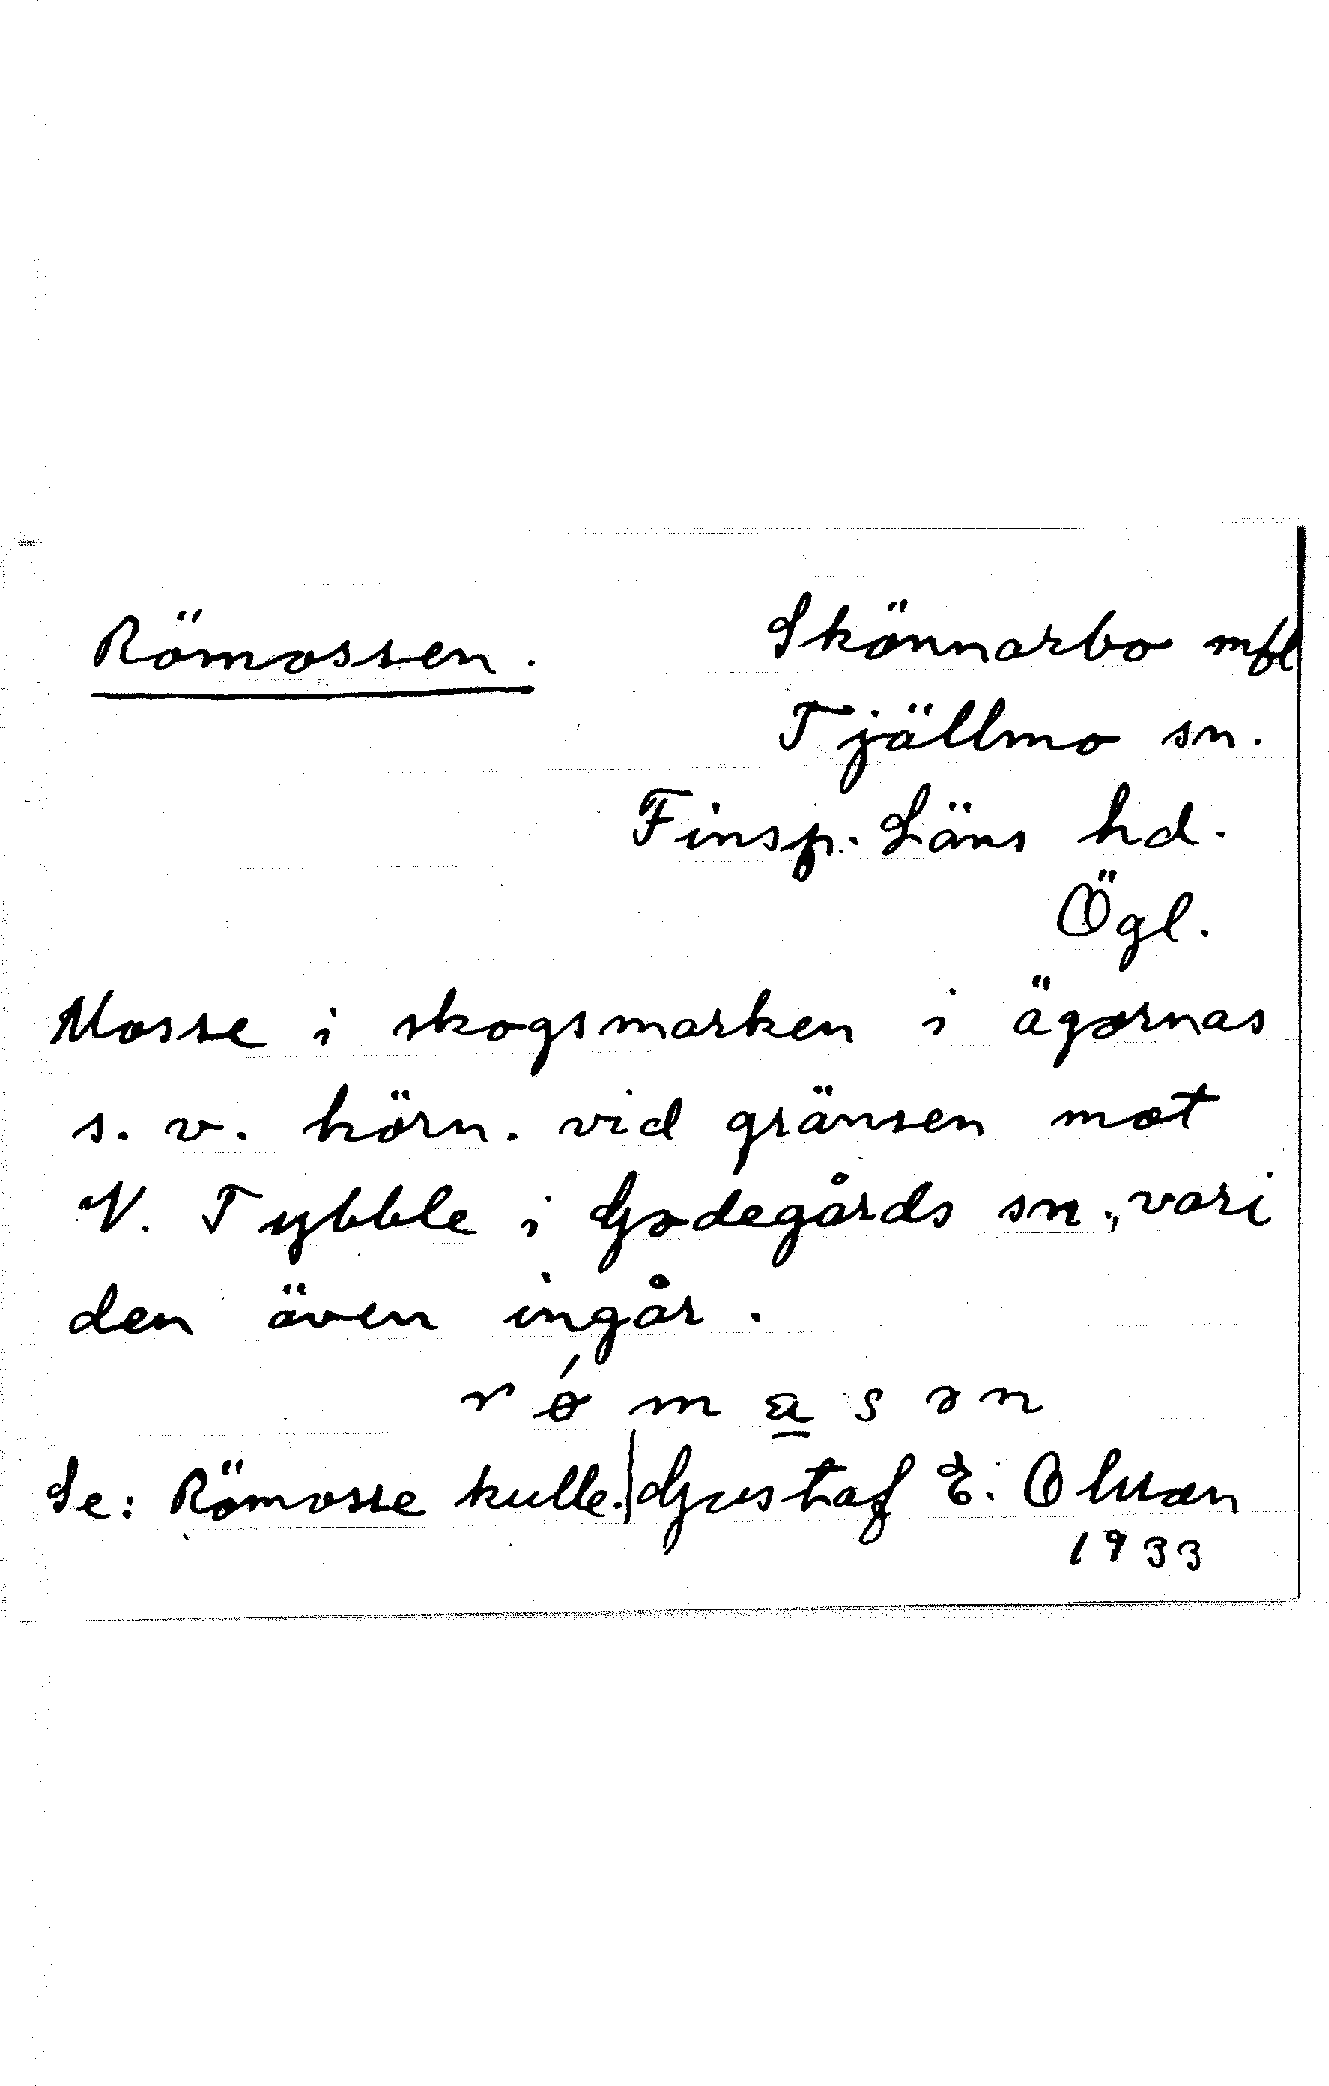 Römossen. Skönnarbo mfl
Tjällmo sn.
Finsp. Läns hd.
Ögl.
Mosse i skogsmarken i ägornas
s. v. hörn. vid gränsen mot
N. Tybble i Godegårds sn., vari
den även ingår.
rǿma̲sən
Se: Römosse kulle. | Gustaf E. Olsson
1933